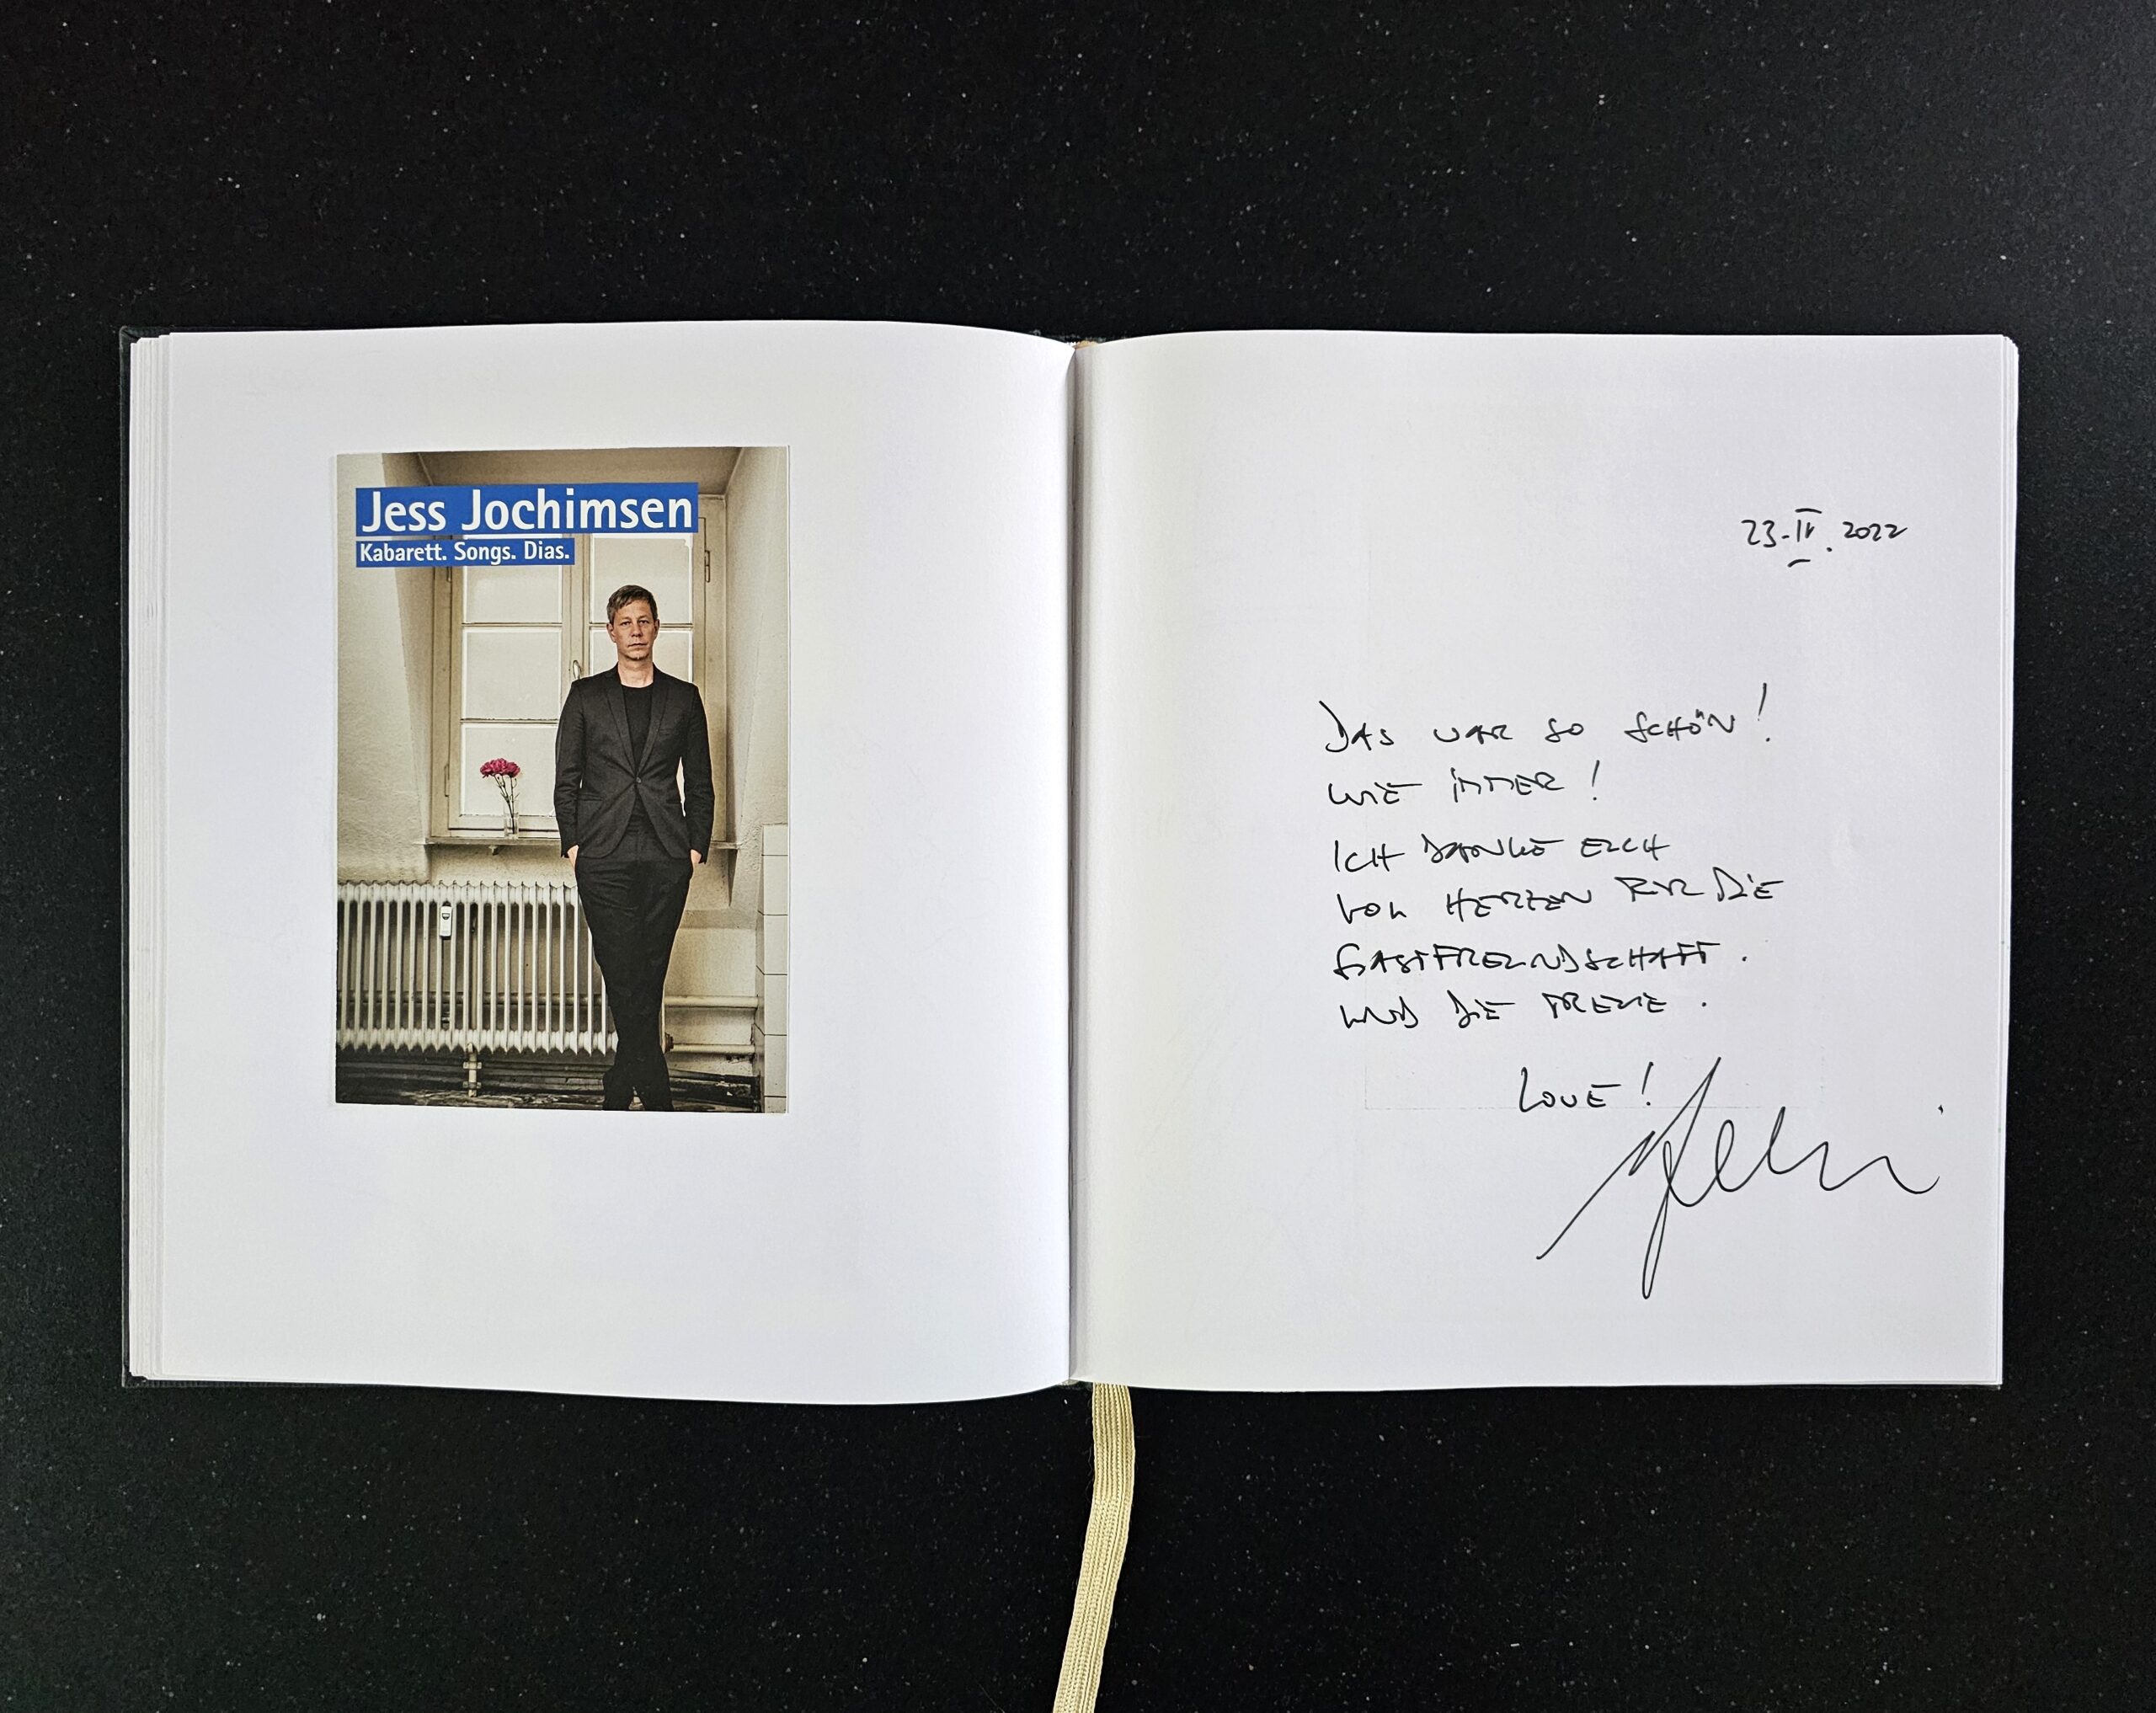 Jess Jochimsen
Kabarett. Songs. Dias.
23.IV.2022
DAS WAR SO SCHÖN!
WIE IMMER!
ICH DANKE EUCH
VON HERZEN FÜR DIE
GASTFREUNDSCHAFT.
UND DIE TREUE.
LOVE!